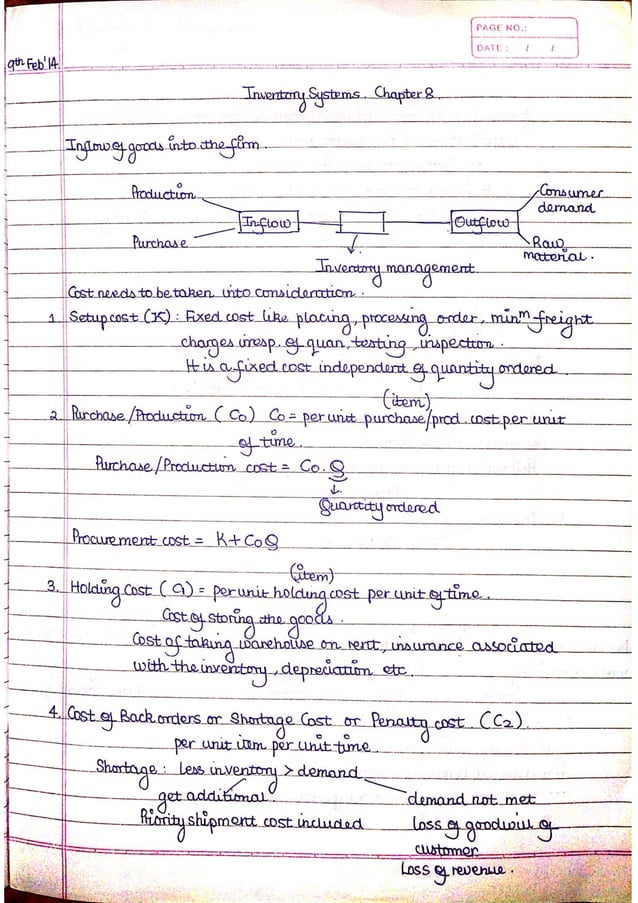 PAGE NO.:
DATE: / /
9th Feb'14
Inventory Systems. Chapter 8.
Inflow of goods into the firm.
Production
Purchase
Inflow
Outflow
Consumer
demand
Raw
material.
Inventory management.
Cost needs to be taken into consideration.
1. Setup cost (K): Fixed cost like placing, processing order, minm freight
charges irresp. of quan, testing, inspection.
It is a fixed cost independent of quantity ordered.
(item)
2. Purchase/Production (Co) Co = per unit purchase/prod. cost per unit
of time.
Purchase/Production cost = Co.Q
Quantity ordered
Procurement cost = K + CoQ
(item)
3. Holding Cost (C1) = per unit holding cost per unit of time.
Cost of storing the goods.
Cost of taking warehouse on rent, insurance associated
with the inventory, depreciation etc.
4. Cost of Back orders or Shortage Cost or Penalty cost (C2)
per unit item per unit time.
Shortage: less inventory > demand
get additional.
Priority shipment cost included
demand not met
loss of goodwill of
customer
Loss of revenue.